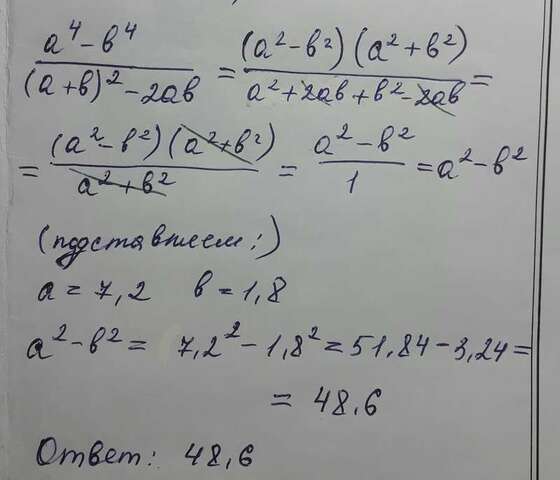 (a⁴ - b⁴) / ((a + b)² - 2ab) = (a² - b²)(a² + b²) / (a² + 2ab + b² - 2ab) =
= (a² - b²)(a² + b²) / (a² + b²) = (a² - b²) / 1 = a² - b²
(подставляем:)
a = 7,2 b = 1,8
a² - b² = 7,2² - 1,8² = 51,84 - 3,24 =
= 48,6
Ответ: 48,6